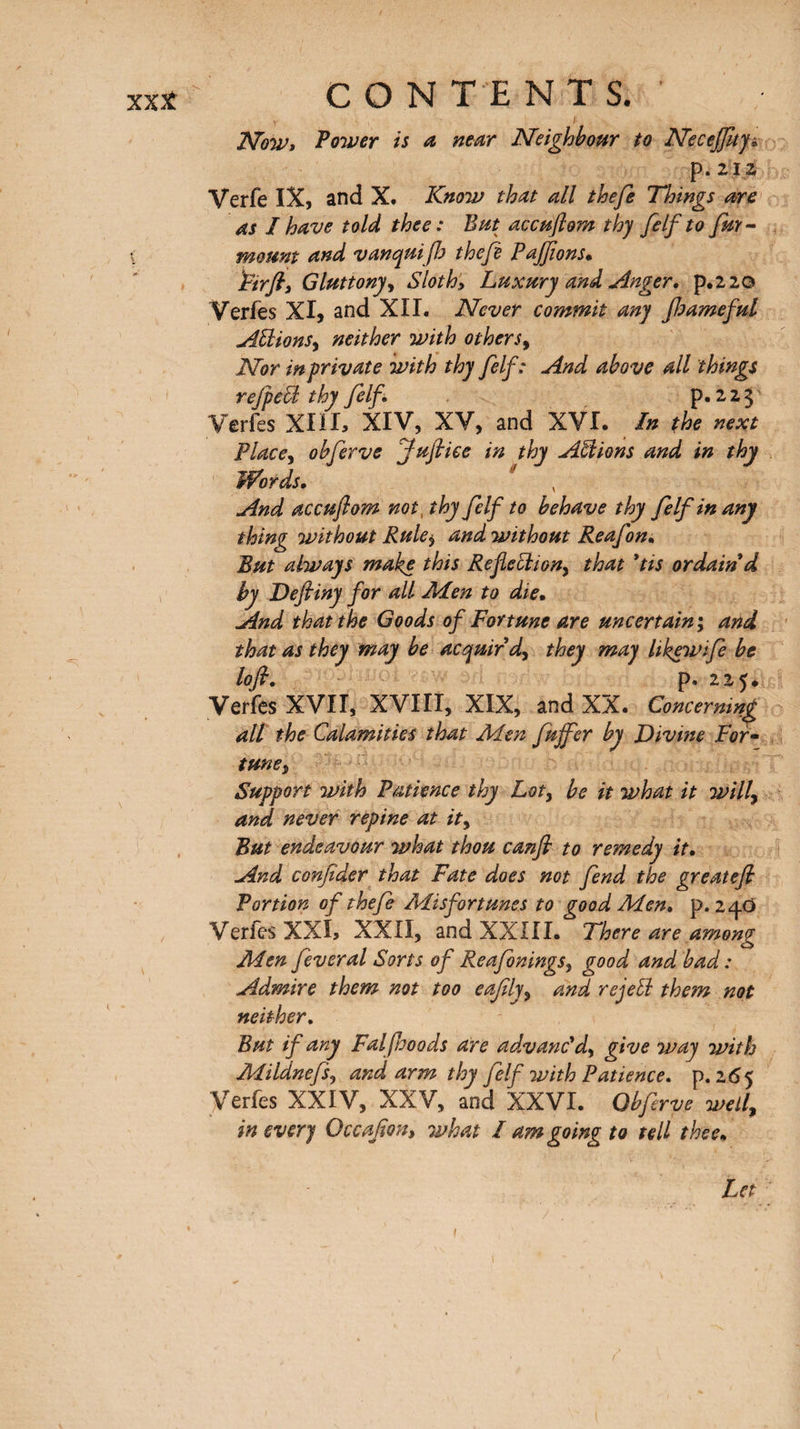 xxx CONTENTS.
Now, Power is a near Neighbour to Neceſſity.
p. 212
Verſe IX, and X. Know that all theſe Things are
as I have told thee: But accuſtom thy ſelf to ſur-
mount and vanquiſh theſe Paſſions.
Firſt, Gluttony, Sloth, Luxury and Anger. p.220
Verſes XI, and XII. Never commit any ſhameful
Actions, neither with others,
Nor in private with thy ſelf: And above all things
reſpect thy ſelf. p.223
Verſes XIII, XIV, XV, and XVI. In the next
Place, obſerve Juſtice in thy Actions and in thy
Words.
And accuſtom not thy ſelf to behave thy ſelf in any
thing without Rule, and without Reaſon.
But always make this Reflection, that 'tis ordain'd
by Deſtiny for all Men to die.
And that the Goods of Fortune are uncertain; and
that as they may be acquir'd, they may likewiſe be
loſt. p. 225.
Verſes XVII, XVIII, XIX, and XX. Concerning
all the Calamities that Men ſuffer by Divine For-
tune,
Support with Patience thy Lot, be it what it will,
and never repine at it,
But endeavour what thou canſt to remedy it.
And conſider that Fate does not ſend the greateſt
Portion of theſe Misfortunes to good Men. p. 240
Verſes XXI, XXII, and XXIII. There are among
Men ſeveral Sorts of Reaſonings, good and bad:
Admire them not too eaſily, and reject them not
neither.
But if any Falſhoods are advanc'd, give way with
Mildneſs, and arm thy ſelf with Patience. p. 265
Verſes XXIV, XXV, and XXVI. Obſerve well,
in every Occaſion, what I am going to tell thee.
Let